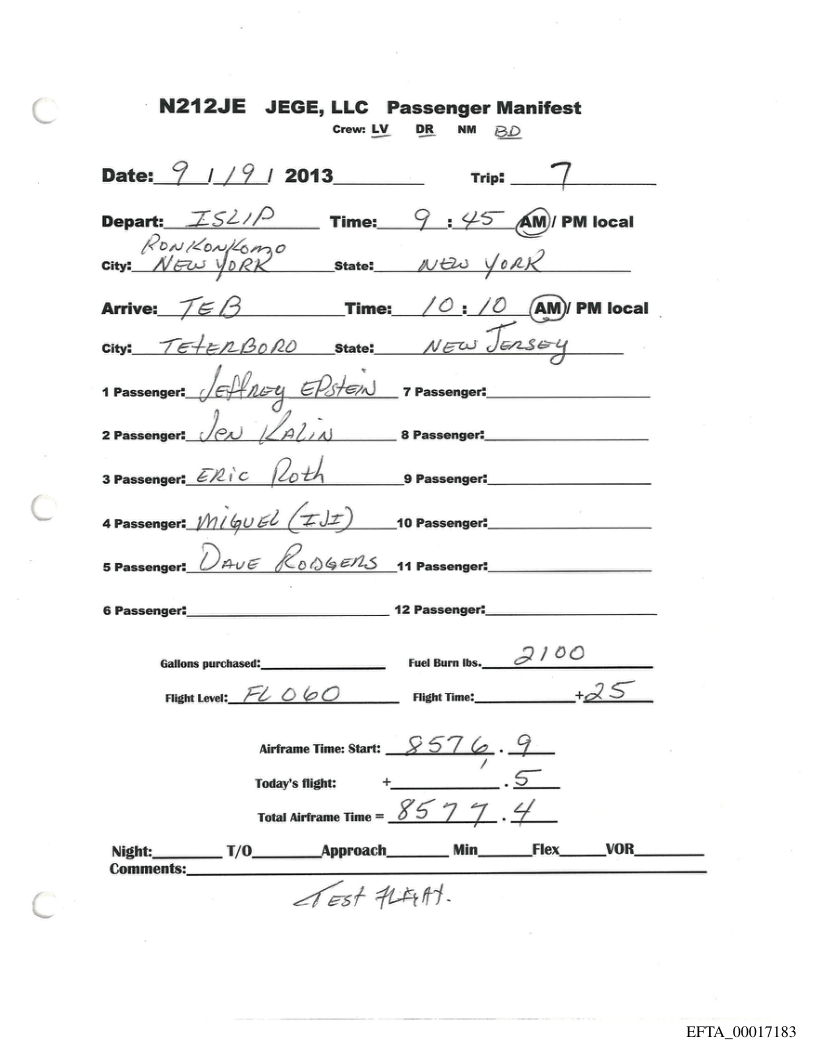 N212JE JEGE, LLC Passenger Manifest
Crew: LV DR NM BD
Date: 9 / 19 / 2013 Trip: 7
Depart: ISLIP Time: 9 : 45 AM / PM local
RONKONKOMO
City: NEW YORK State: NEW YORK
Arrive: TEB Time: 10 : 10 AM / PM local
City: TETERBORO State: NEW JERSEY
1 Passenger: Jeffrey EPstEiN 7 Passenger:
2 Passenger: Jen KALiN 8 Passenger:
3 Passenger: ERic Roth 9 Passenger:
4 Passenger: MiGUEL (IJI) 10 Passenger:
5 Passenger: DAVE RODGERS 11 Passenger:
6 Passenger: 12 Passenger:
Gallons purchased: Fuel Burn lbs. 2100
Flight Level: FL 060 Flight Time: +25
Airframe Time: Start: 8576 . 9
Today's flight: + . 5
Total Airframe Time = 8577 . 4
Night: T/O Approach Min Flex VOR
Comments:
TEST FLIGHT.
EFTA_00017183